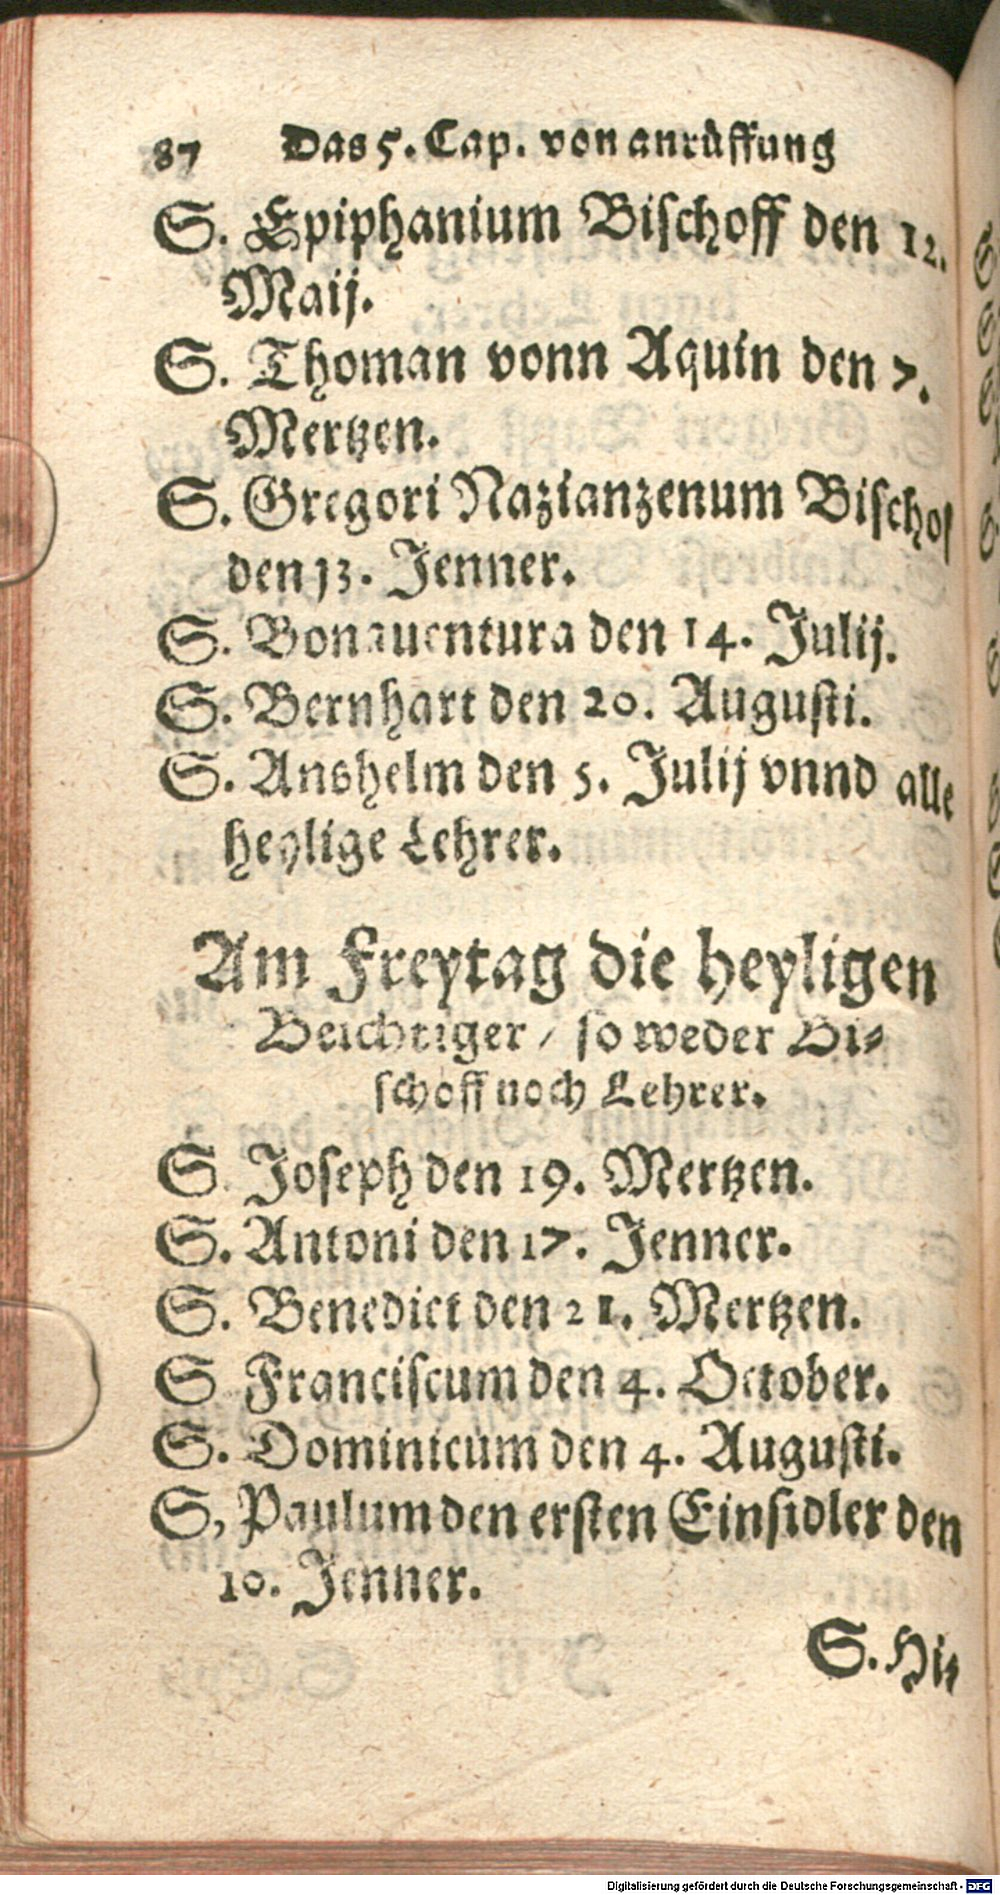 87 Das 5. Cap. von anrüffung
S. Epiphanium Bischoff den 12.
Maij.
S. Thoman vonn Aquin den 7.
Mertzen.
S. Gregori Nazianzenum Bischof
den 13. Jenner.
S. Bonauentura den 14. Julij.
S. Bernhart den 20. Augusti.
S. Anshelm den 5. Julij vnnd alle
heylige Lehrer.
Am Freytag die heyligen
Beichtiger / so weder Bi⸗
schoff noch Lehrer.
S. Joseph den 19. Mertzen.
S. Antoni den 17. Jenner.
S. Benedict den 21. Mertzen.
S Franciscum den 4. October.
S. Dominicum den 4. Augusti.
S, Paulum den ersten Einsidler den
10. Jenner.
S. Hi⸗
Digitalisierung gefördert durch die Deutsche Forschungsgemeinschaft - DFG